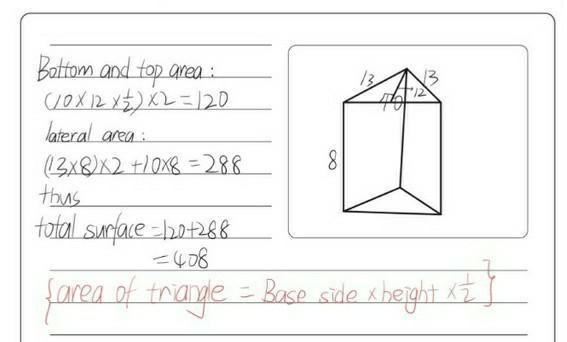 Bottom and top area:
(10×12×½)×2=120
lateral area:
(13×8)×2+10×8=288
thus
total surface=120+288
=408
{area of triangle = Base side × height × ½}
13
13
12
10
8